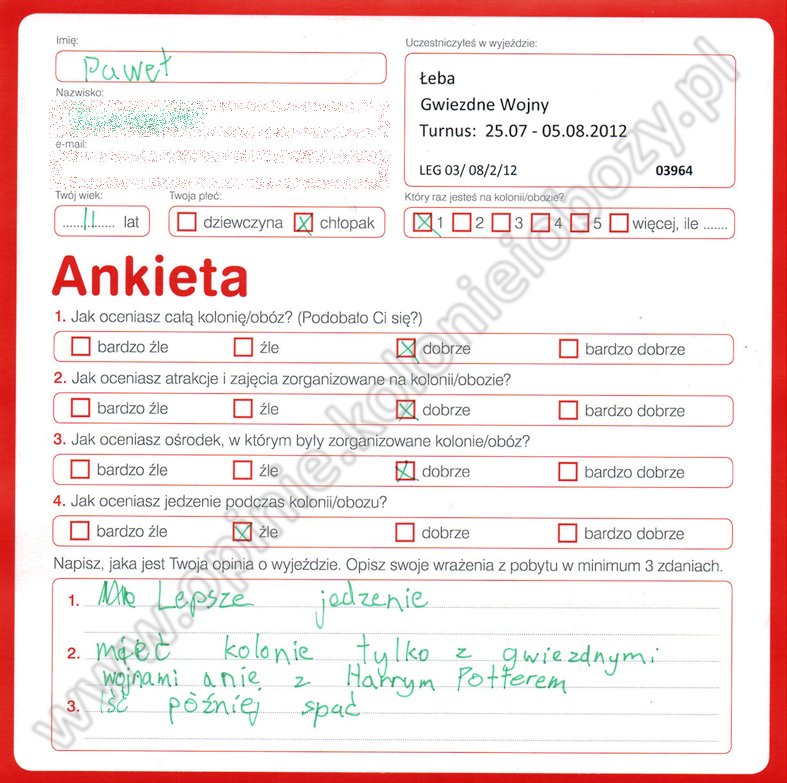 Imię:
Paweł
Uczestniczyłeś w wyjeździe:
Łeba
Gwiezdne Wojny
Turnus: 25.07 - 05.08.2012
LEG 03/ 08/2/12 03964
Nazwisko:
e-mail:
Twój wiek:
......11...... lat
Twoja płeć:
dziewczyna chłopak
Który raz jesteś na kolonii/obozie?
1 2 3 4 5 więcej, ile .......
Ankieta
1. Jak oceniasz całą kolonię/obóz? (Podobało Ci się?)
bardzo źle źle dobrze bardzo dobrze
2. Jak oceniasz atrakcje i zajęcia zorganizowane na kolonii/obozie?
bardzo źle źle dobrze bardzo dobrze
3. Jak oceniasz ośrodek, w którym były zorganizowane kolonie/obóz?
bardzo źle źle dobrze bardzo dobrze
4. Jak oceniasz jedzenie podczas kolonii/obozu?
bardzo źle źle dobrze bardzo dobrze
Napisz, jaka jest Twoja opinia o wyjeździe. Opisz swoje wrażenia z pobytu w minimum 3 zdaniach.
1. Lepsze jedzenie
2. mieć kolonie tylko z gwiezdnymi
wojnami a nie z Harrym Potterem
3. iść później spać
www.opinie.kolonieiobozy.pl